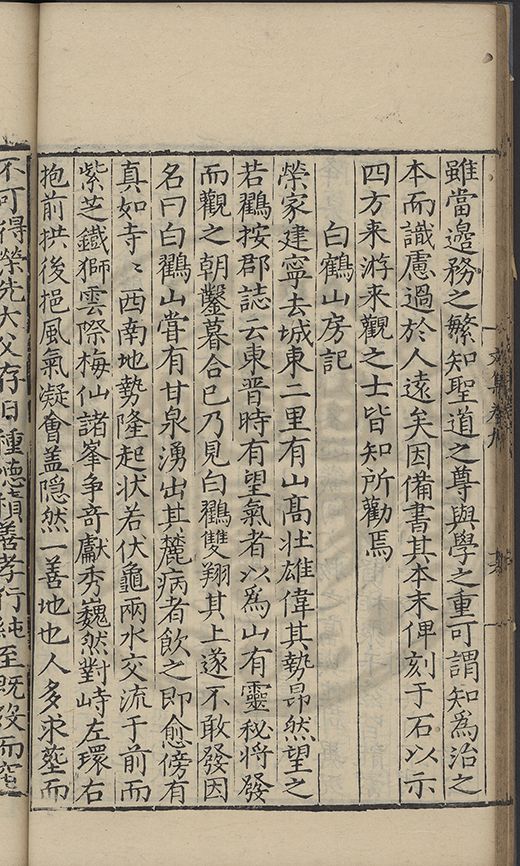 雖當邊務之繁知聖道之尊與學之重可謂知為治之
本而識慮過於人遠矣因備書其本末俾刻于石以示
四方来游来觀之士皆知所勸焉
白鶴山房記
榮家建寧去城東二里有山髙壯雄偉其勢昂然望之
若鸖按郡誌云東晋時有望氣者以為山有靈秘將發
而觀之朝鑿暮合已乃見白鸖雙翔其上遂不敢發因
名曰白鸖山甞有甘泉湧出其麓病者飲之即愈傍有
真如寺〻西南地勢隆起状若伏龜兩水交流于前而
紫芝鐵獅雲際梅仙諸峯争竒獻秀巍然對峙左環右
抱前拱後挹風氣凝會盖隠然一善地也人多求塟而
不可得榮先大父存日種德積善孝行純至既沒而窀
文集卷九